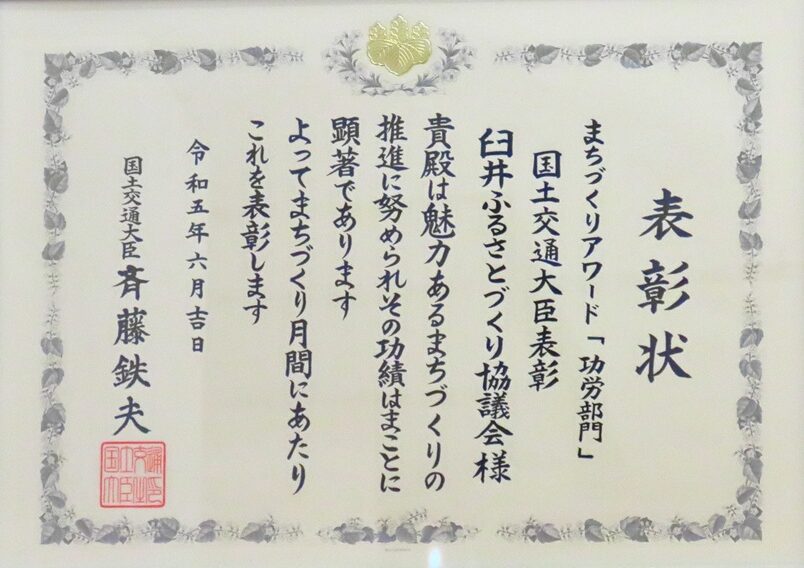 表彰状
まちづくりアワード「功労部門」
国土交通大臣表彰
臼井ふるさとづくり協議会様
貴殿は魅力あるまちづくりの
推進に努められその功績はまことに
顕著であります
よってまちづくり月間にあたり
これを表彰します
令和五年六月吉日
国土交通大臣 斉藤鉄夫